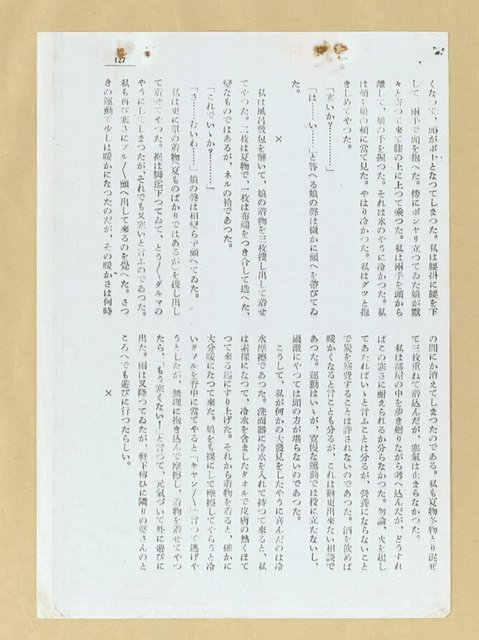 127
くなつて、頭がボーとなつてしまつた。私は腰掛に腰を下
して、兩手で頭を抱へた。傍にボンヤリ立つてゐた娘が默
々と寄つて來て膝の上に上つて乘つた。私は兩手を頭から
離して、娘の手を握つた。それは氷のやうに冷かつた。私
は頬を娘の頬に當て見た。やはり冷かつた。私はグツと抱
きしめてやつた。
「寒いか？………」
「は……い……」と答へる娘の聲は微かに顫へを帶びてゐ
た。
×
私は風呂敷包を解いて、娘の着物を三枚捜し出して着せ
てやつた。二枚は夏物で、一枚は布端をつき合して造へた、
變なものではあるが、ネルの袷であつた。
「これでいゝか？………」
「さ……むいわ……」娘の聲は相變らず顫へてゐた。
私は更に單の着物（夏ものばかりではあるが）を捜し出し
て着せてやつた。裾は脚迄下つてゐて、とう〱ダルマの
やうにしてしまつたが、それでも又寒いと言ふのであつた。
私も再び寒さにブル〱顫へ出して來るのを覺へた。さつ
きの運動で少しは暖かになつたのだが、その暖かさは何時
の間にか消えてしまつたのである。私も夏物冬物とり混ぜ
て三枚重ねて着込んだが、寒氣は止まらなかつた。
私は部屋の中を歩き廻りながら考へ込んだが、どうすれ
ばこの寒さに耐えられるか分らなかつた。勿論、火を起し
てあたればいゝと言ふことは分るが、營養にならないこと
で炭を浪費することは許されないのであつた。酒を飮めば
暖かくなると言ことも分るが、これは猶更出來ない相談で
あつた。運動はいゝが、寛慢な運動では役に立たないし、
過激にやつては頭の方が堪らないのであつた。
こうして、私が何かの大發見をしたやうに喜んだのは冷
水摩擦であつた。洗面器に冷水を入れて持つて來ると、私
は素裸になつて、冷水を含ましたタオルで皮膚の熱くほて
つて來る迄にすり上げた。それから着物を着ると、確かに
大分暖になつて來た。娘をも裸にして摩擦してやらうと冷
いタヲルを脊中に當てやると「キヤン〱」言つて逃げや
うとしたが、無理に抱き込んで摩擦し、着物を着せてやつ
たら、「もう寒くない！」と言つて、元氣づいて外に遊びに
出た。雨は又降つてゐたが、軒下傳ひに隣りの婆さんのと
ころへでも遊びに行つたらしい。
×